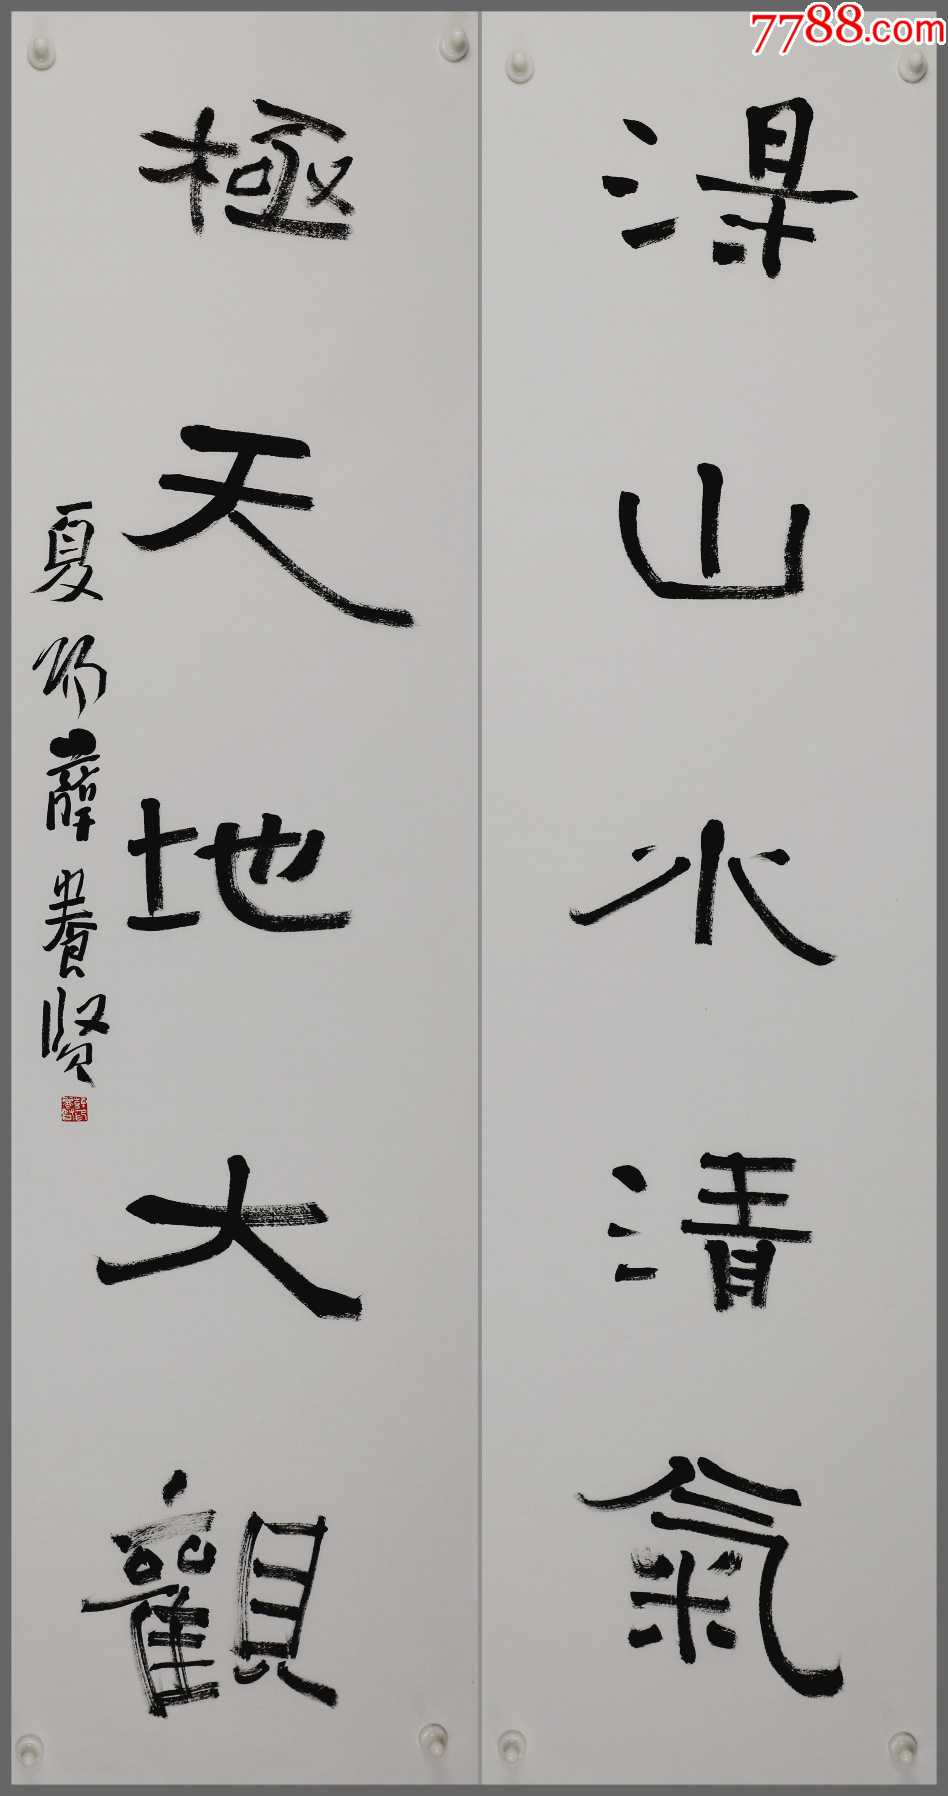 7788.com
淂山水清氣
極天地大觀
夏阳薛養贤